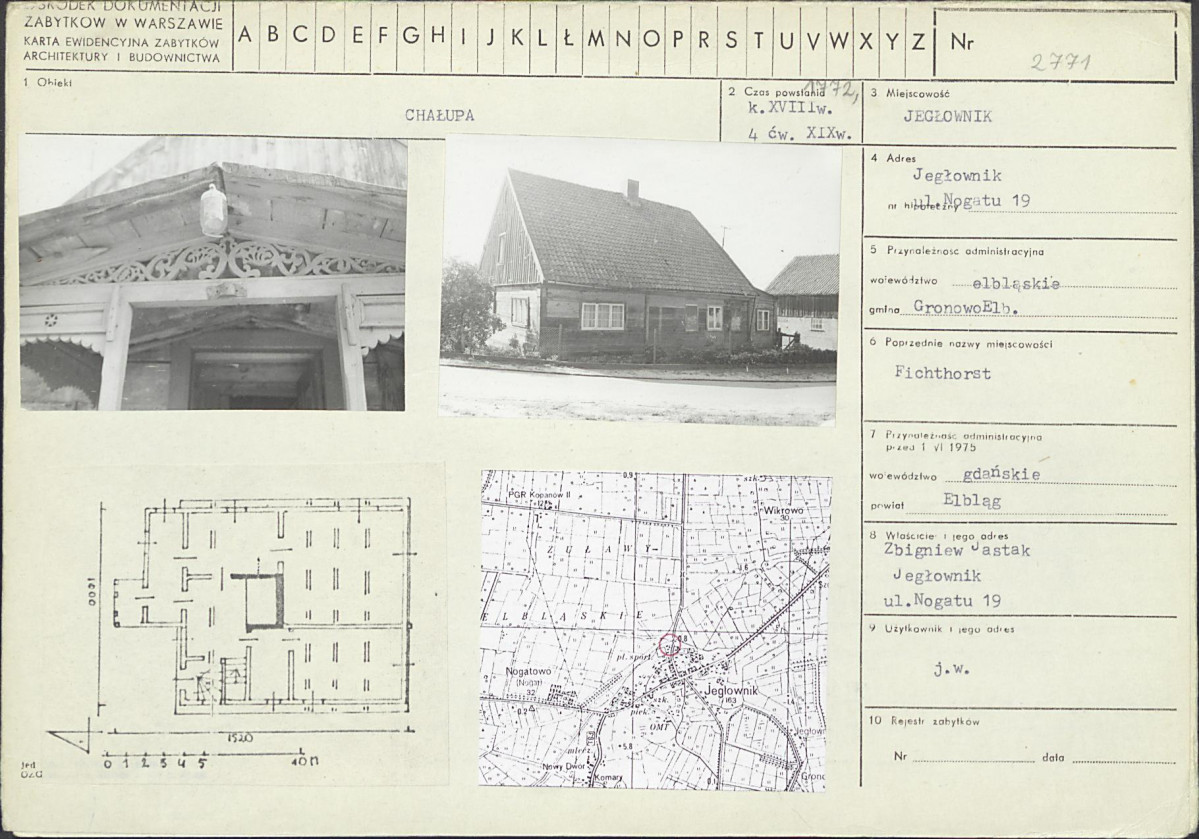 OŚRODEK DOKUMENTACJI
ZABYTKÓW W WARSZAWIE
KARTA EWIDENCYJNA ZABYTKÓW
ARCHITEKTURY I BUDOWNICTWA
A B C D E F G H I J K L Ł M N O P R S T U V W X Y Z
Nr
2771
1 Obiekt
CHAŁUPA
2 Czas powstania
1772,
k.XVIIIw.
4 ćw. XIXw.
3 Miejscowość
JEGŁOWNIK
4 Adres
Jegłownik
nr hipoteczny
ul.Nogatu 19
5 Przynależność administracyjna
województwo elbląskie
gmina GronowoElb.
6 Poprzednie nazwy miejscowości
Fichthorst
7 Przynależność administracyjna
przed 1 VI 1975
województwo gdańskie
powiat Elbląg
8 Właściciel i jego adres
Zbigniew Jastak
Jegłownik
ul.Nogatu 19
9 Użytkownik i jego adres
j.w.
10 Rejestr zabytków
Nr data
1000
1520
0 1 2 3 4 5 10 M
PGR Kopanów II
Wikrowo
30
ŻUŁAWY
ELBLĄSKIE
0.9
0.8
pl. sport.
Nogatowo
(Nogat)
32
0.2
Jegłownik
163
szk.
OMT
5.8
mlecz.
Nowy Dwór
Komary
1.4
0.1